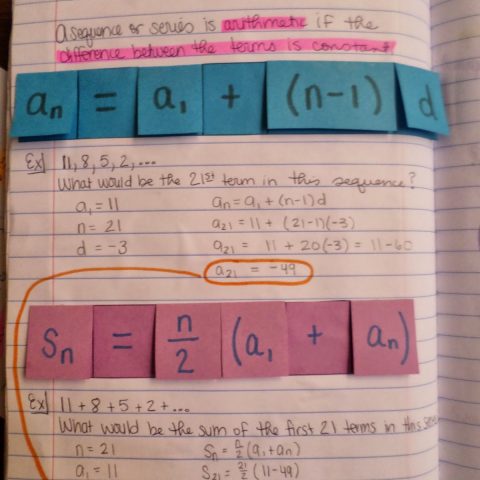 A sequence or series is arithmetic if the
difference between the terms is constant
aₙ = a₁ + (n-1) d
Ex) 11, 8, 5, 2, ...
What would be the 21st term in this sequence?
a₁ = 11 aₙ = a₁ + (n-1)d
n = 21 a₂₁ = 11 + (21-1)(-3)
d = -3 a₂₁ = 11 + 20(-3) = 11-60
a₂₁ = -49
Sₙ = n/2 (a₁ + aₙ)
Ex) 11 + 8 + 5 + 2 + ...
What would be the sum of the first 21 terms in this
n = 21 Sₙ = n/2 (a₁ + aₙ)
a₁ = 11 S₂₁ = 21/2 (11-49)